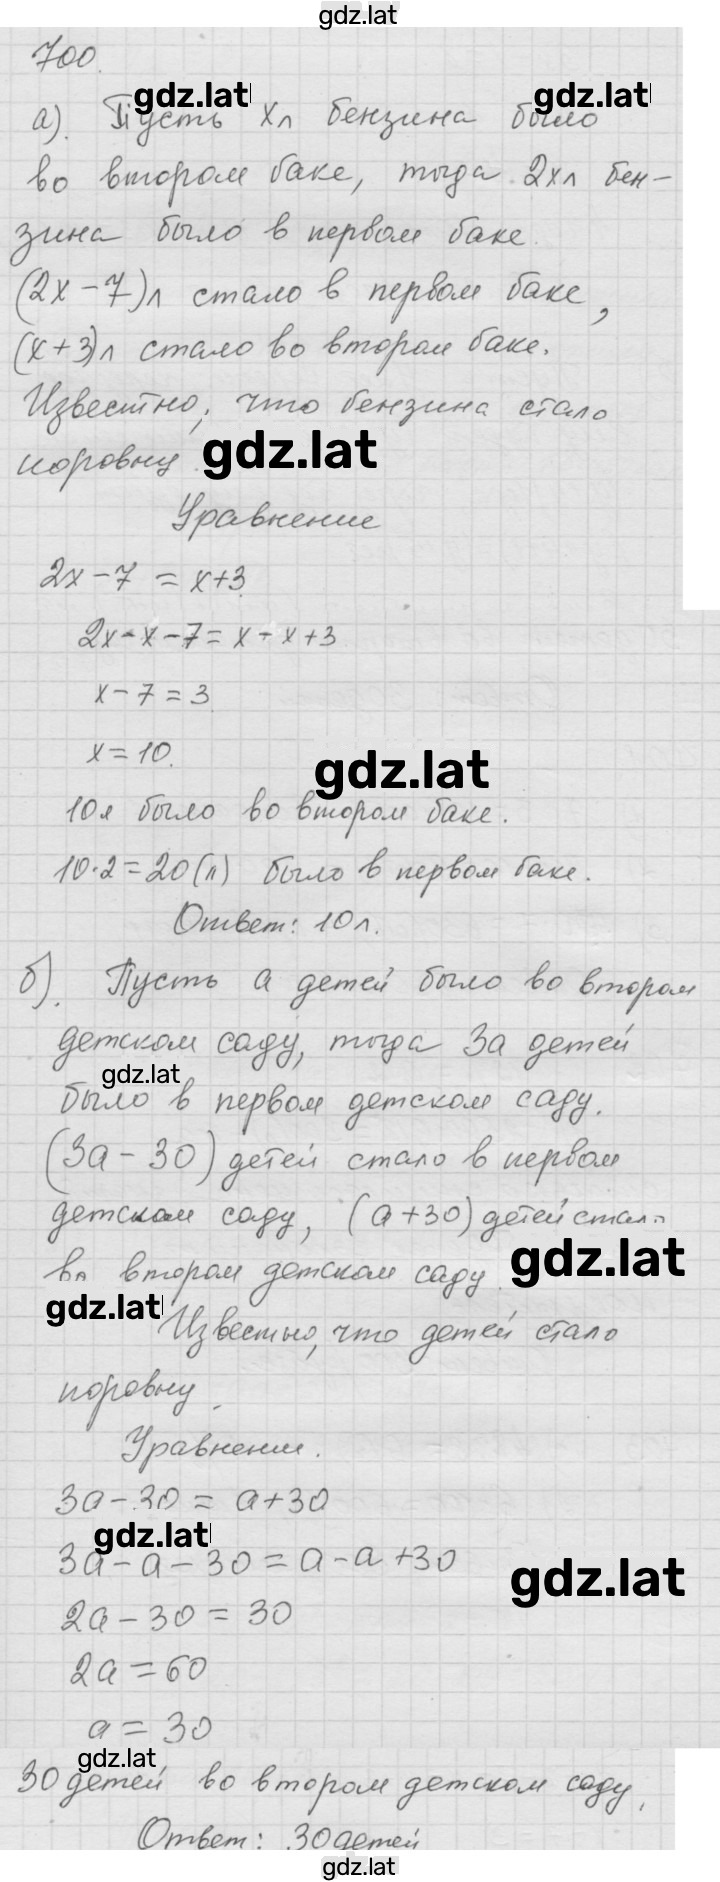 gdz.lat
700.
gdz.lat gdz.lat
а). Пусть xл бензина было
во втором баке, тогда 2xл бен-
зина было в первом баке.
(2x-7)л стало в первом баке,
(x+3)л стало во втором баке.
Известно, что бензина стало
поровну.
gdz.lat
Уравнение
2x-7 = x+3.
2x-x-7 = x-x+3
x-7 = 3
x=10.
gdz.lat
10л было во втором баке.
10·2=20(л) было в первом баке.
Ответ: 10л.
б). Пусть а детей было во втором
детском саду, тогда 3а детей
gdz.lat
было в первом детском саду.
(3а-30) детей стало в первом
детском саду, (а+30) детей стало
во втором детском саду.
gdz.lat
gdz.lat
Известно, что детей стало
поровну.
Уравнение.
3а-30 = а+30
gdz.lat
3а-а-30=а-а+30
gdz.lat
2а-30=30
2а=60
а=30
gdz.lat
30 детей во втором детском саду.
Ответ: 30 детей
gdz.lat